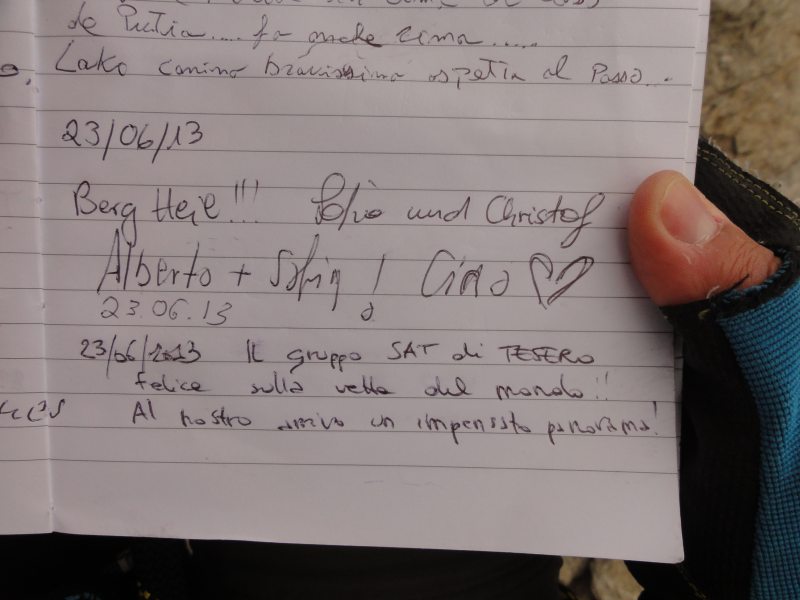 de Putia.... fa anche cima.....
Lako canino bravissimo aspetta al Passo...
23/06/13
Berg Heil!!! und Christof
Alberto + Sofia! Ciao ♡
23.06.13
23/06/2013 Il gruppo SAT di TESERO
felice sulla vetta del mondo!!
Al nostro arrivo un impensato panorama!